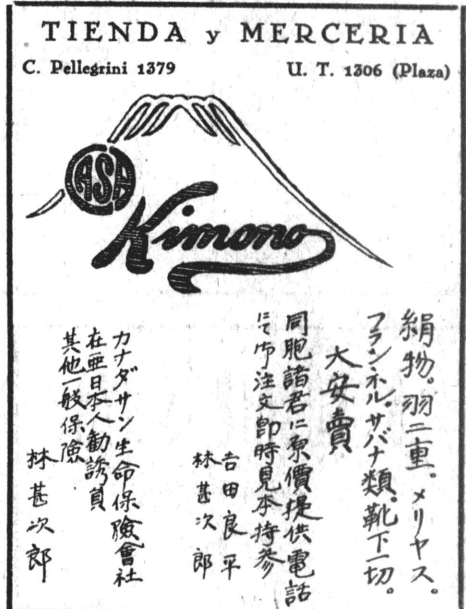 TIENDA y MERCERIA
C. Pellegrini 1379 U. T. 1306 (Plaza)
CASA
Kimono
絹物。羽二重。メリヤス。
フランネル、サバナ類。靴下一切。
大安賣
同胞諸君に原價提供電話
にて御注文即時見本持参
吉田良平
林甚次郎
カナダサン生命保險會社
在亜日本人勧誘員
其他一般保険
林甚次郎